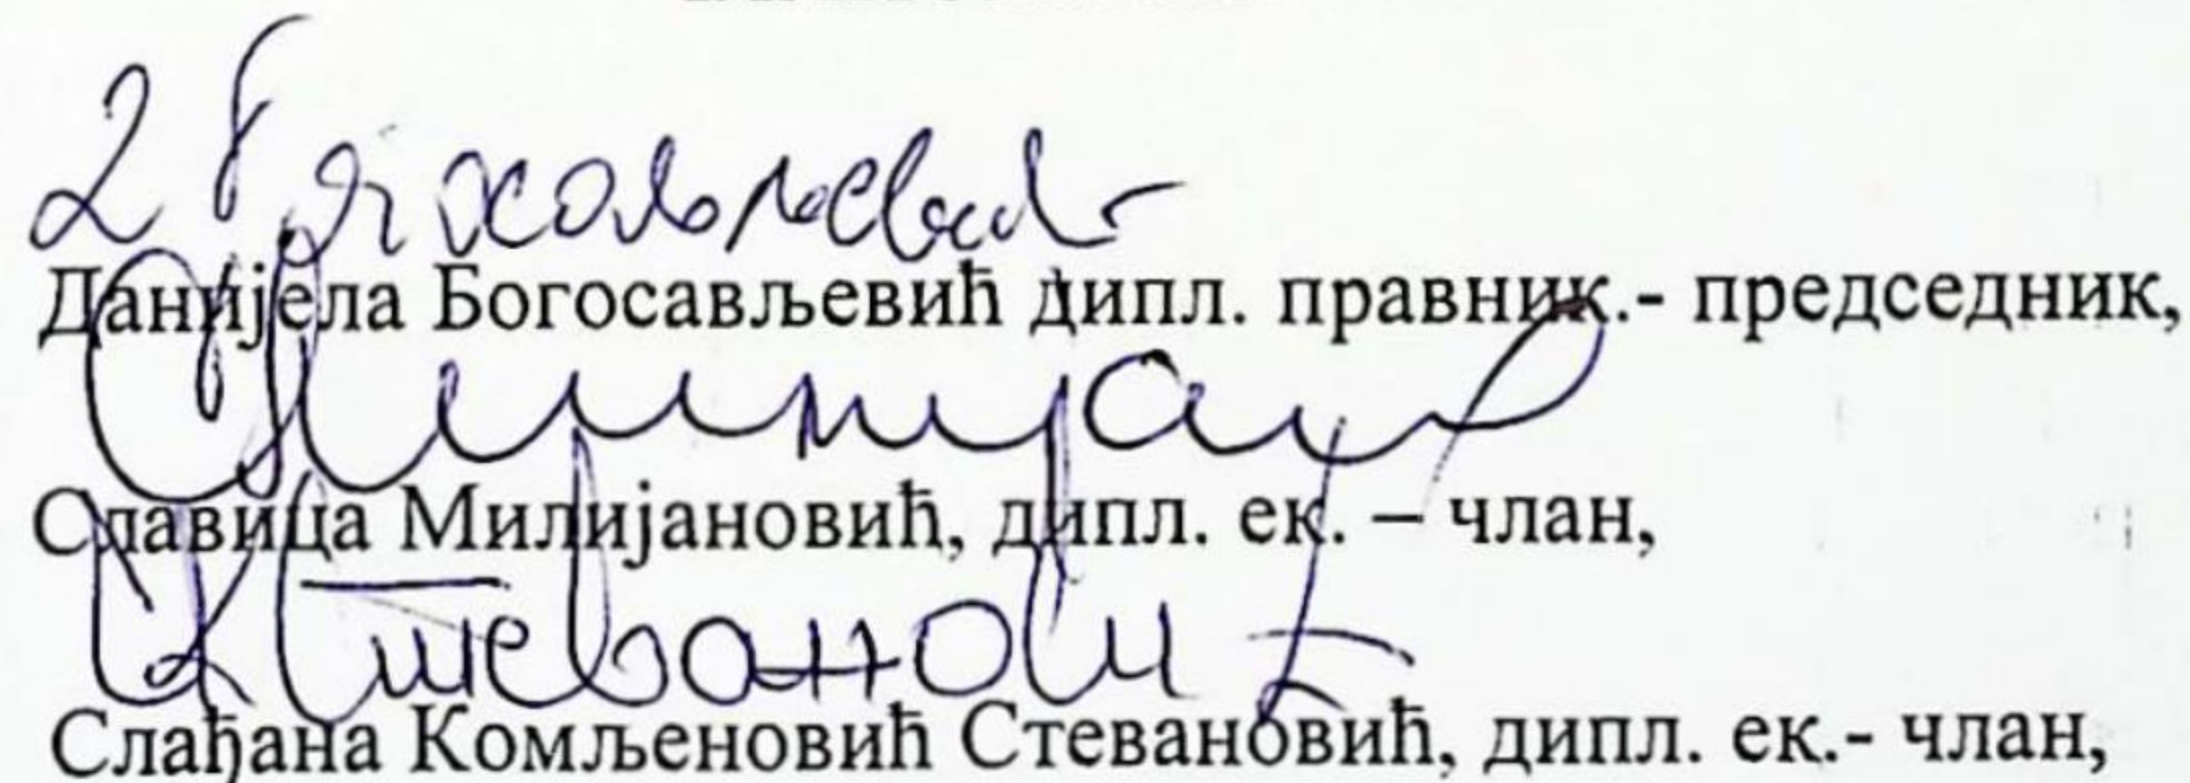 Данијела Богосављевић дипл. правник.- председник,
Славица Милијановић, дипл. ек. – члан,
Стевановић
Слађана Комљеновић Стевановић, дипл. ек.- члан,